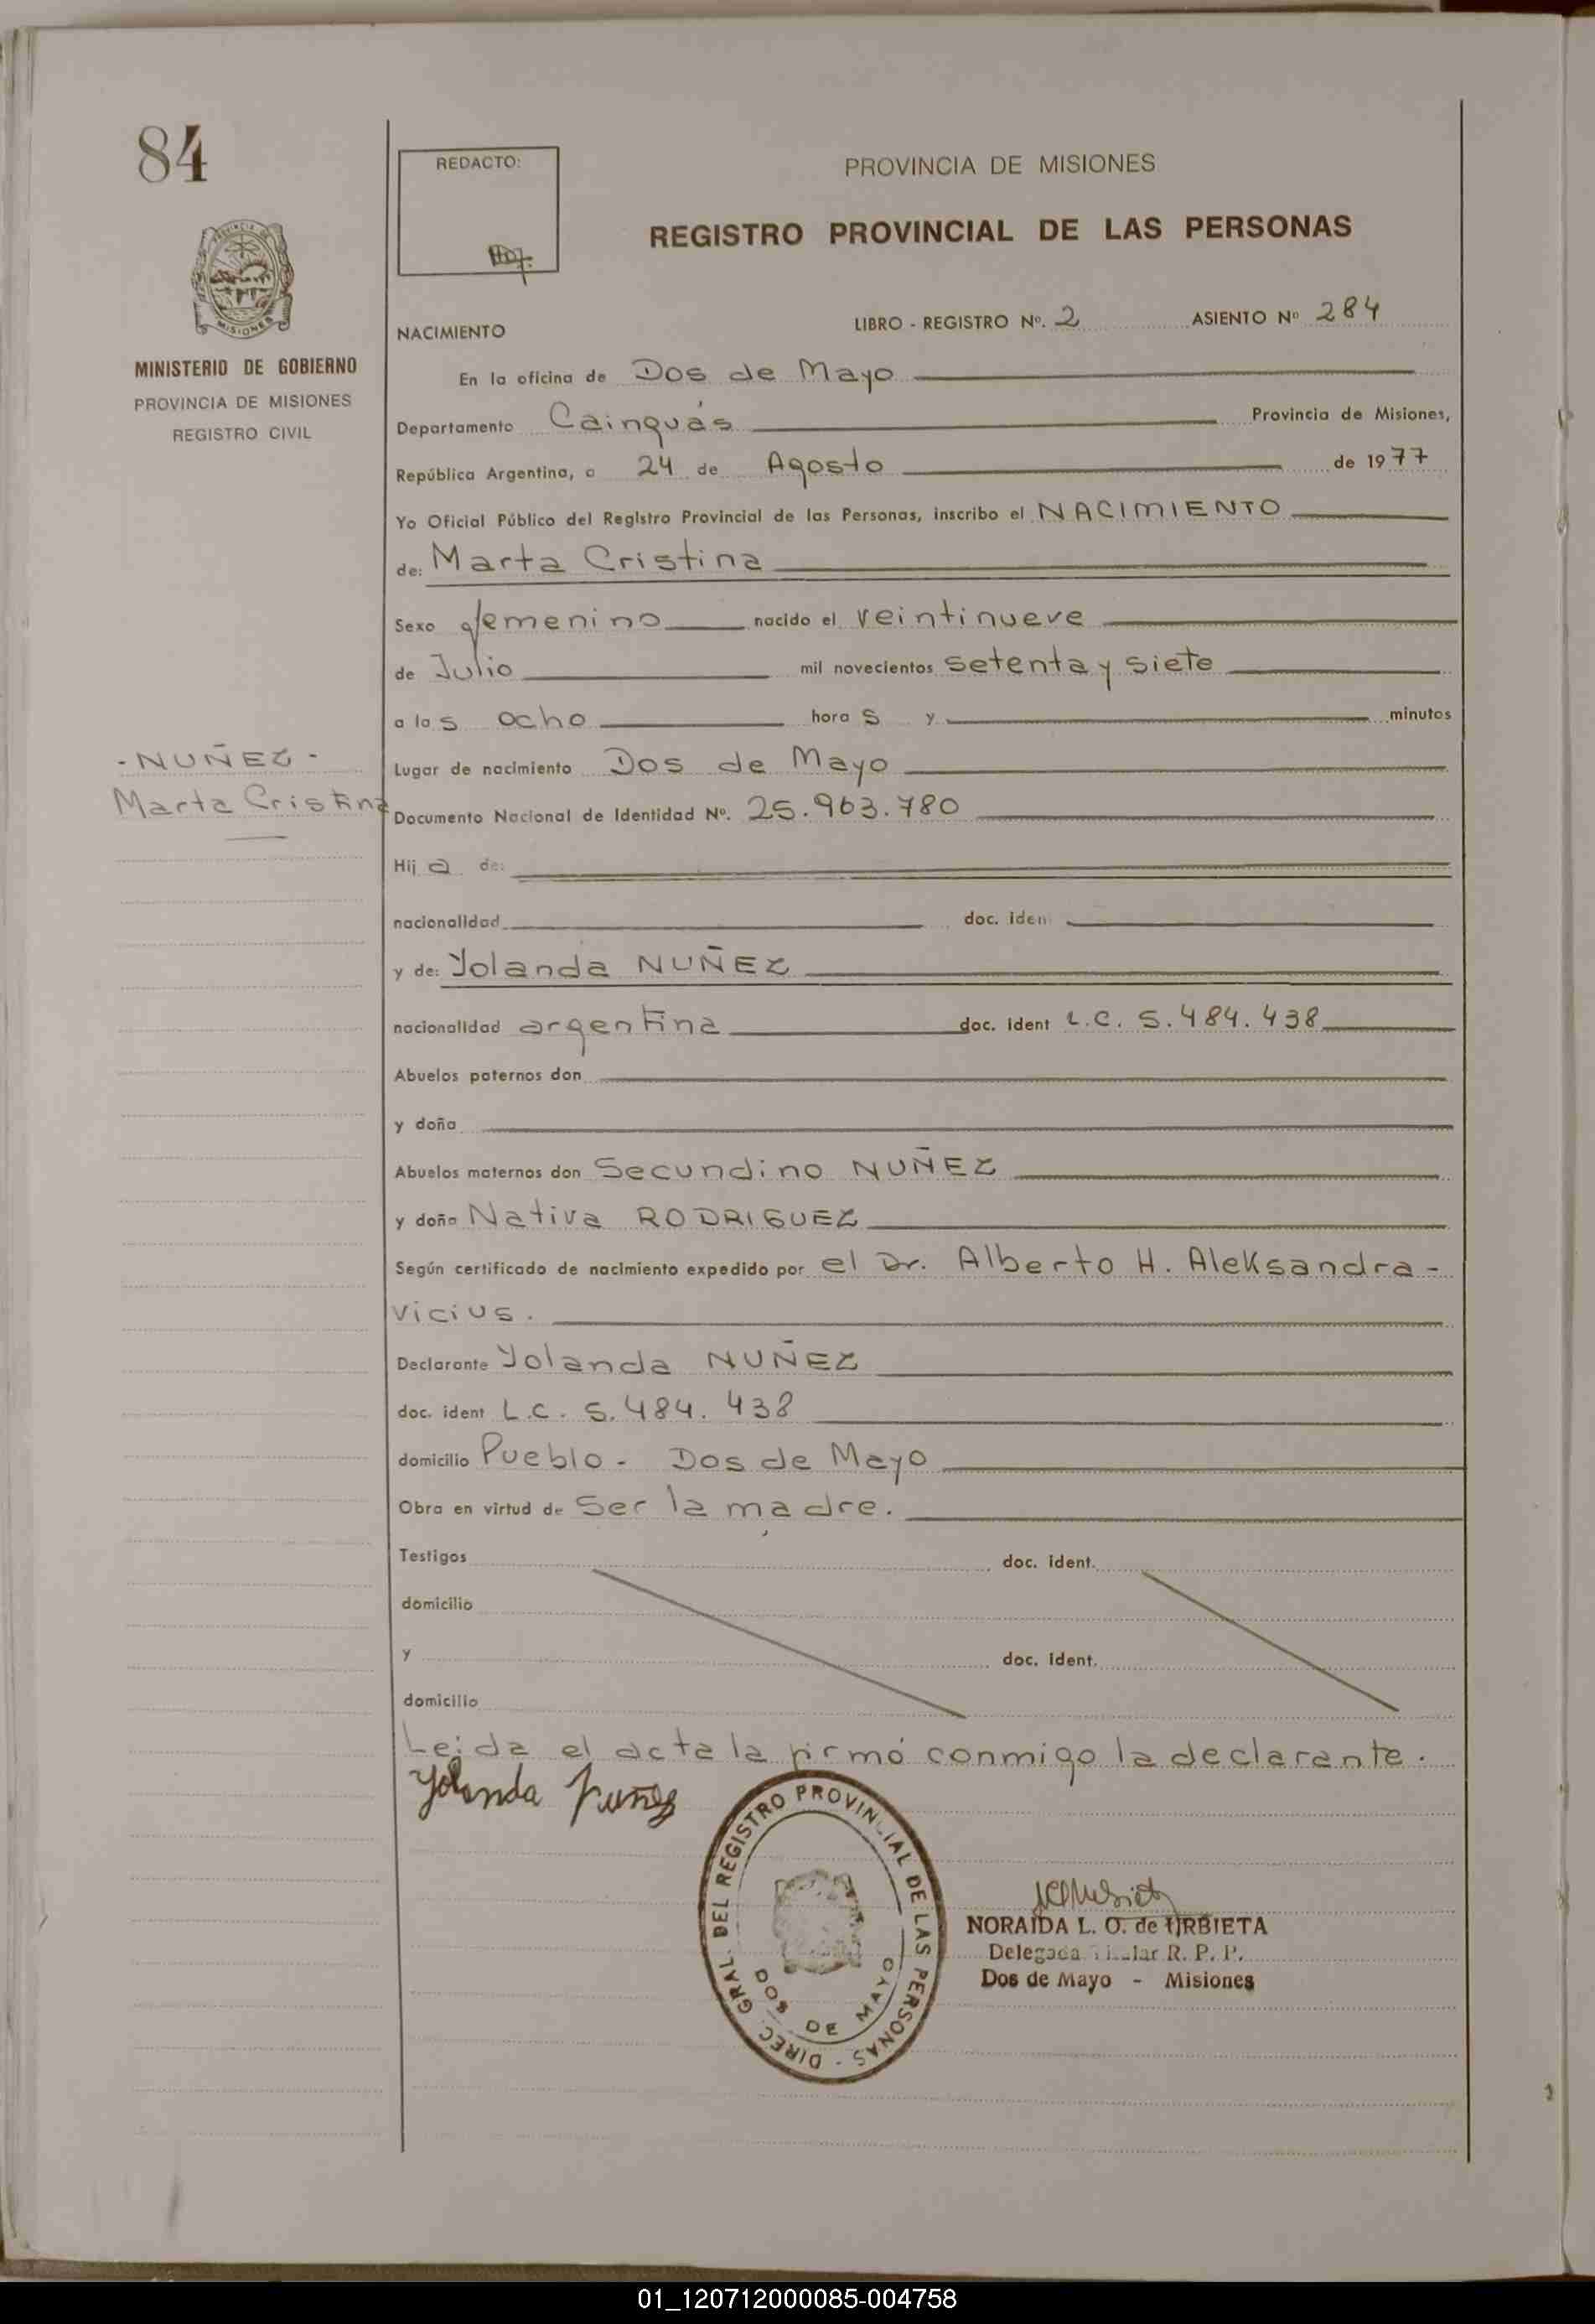 84
REDACTO:
PROVINCIA DE MISIONES
REGISTRO PROVINCIAL DE LAS PERSONAS
MISIONES
MINISTERIO DE GOBIERNO
PROVINCIA DE MISIONES
REGISTRO CIVIL
NACIMIENTO LIBRO - REGISTRO Nº. 2 ASIENTO Nº 284
En la oficina de Dos de Mayo
Departamento Cainguás Provincia de Misiones,
República Argentina, a 24 de Agosto de 1977
Yo Oficial Público del Registro Provincial de las Personas, inscribo el NACIMIENTO
de: Marta Cristina
Sexo femenino nacido el veintinueve
de Julio mil novecientos setenta y siete
a las ocho horas y minutos
- NUÑEZ -
Marta Cristina
Lugar de nacimiento Dos de Mayo
Documento Nacional de Identidad Nº. 25.963.780
Hija de:
nacionalidad doc. iden
y de: Yolanda NUÑEZ
nacionalidad argentina doc. ident L.C. 5.484.438
Abuelos paternos don
y doña
Abuelos maternos don Secundino NUÑEZ
y doña Nativa RODRIGUEZ
Según certificado de nacimiento expedido por el Dr. Alberto H. Aleksandra-
vicius.
Declarante Yolanda NUÑEZ
doc. ident L.C. 5.484.438
domicilio Pueblo - Dos de Mayo
Obra en virtud de Ser la madre.
Testigos doc. ident.
domicilio
y doc. ident.
domicilio
Leida el acta la firmó conmigo la declarante.
Yolanda Nuñez
DIREC. GRAL. DEL REGISTRO PROVINCIAL DE LAS PERSONAS -
DOS DE MAYO
NORAIDA L. O. de URBIETA
Delegada Titular R. P. P.
Dos de Mayo - Misiones
01_120712000085-004758